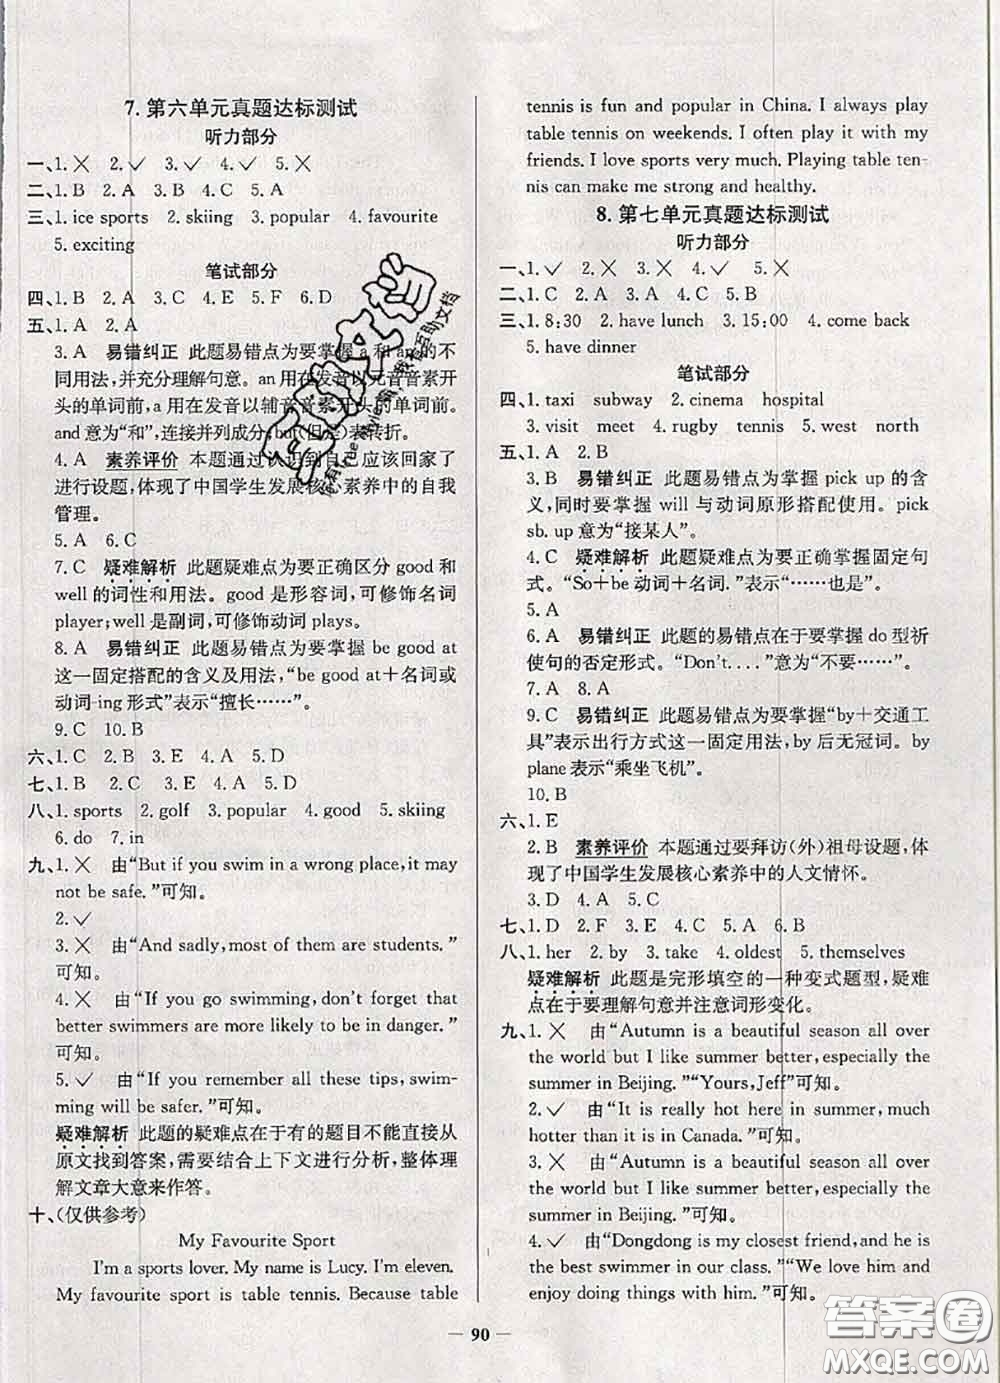 7. 第六单元真题达标测试
听力部分
一、1. ✕ 2. ✓ 3. ✓ 4. ✓ 5. ✕
二、1. B 2. A 3. B 4. C 5. A
三、1. ice sports 2. skiing 3. popular 4. favourite
5. exciting
笔试部分
四、1. B 2. A 3. C 4. E 5. F 6. D
五、1. A 2. A
3. A 易错纠正 此题易错点为要掌握 a 和 an 的不
同用法，并充分理解句意。an 用在发音以元音音素开
头的单词前，a 用在发音以辅音音素开头的单词前。
and 意为“和”，连接并列成分，but(但是)表转折。
4. A 素养评价 本题通过认识到自己应该回家了
进行设题，体现了中国学生发展核心素养中的自我
管理。
5. A 6. C
7. C 疑难解析 此题疑难点为要正确区分 good 和
well 的词性和用法。good 是形容词，可修饰名词
player；well 是副词，可修饰动词 plays。
8. A 易错纠正 此题易错点为要掌握 be good at
这一固定搭配的含义及用法，“be good at＋名词或
动词-ing 形式”表示“擅长……”。
9. C 10. B
六、1. C 2. B 3. E 4. A 5. D
七、1. B 2. C 3. E 4. A 5. D
八、1. sports 2. golf 3. popular 4. good 5. skiing
6. do 7. in
九、1. ✕ 由“But if you swim in a wrong place, it may
not be safe. ”可知。
2. ✓
3. ✕ 由“And sadly, most of them are students. ”
可知。
4. ✕ 由“If you go swimming, don't forget that
better swimmers are more likely to be in danger. ”
可知。
5. ✓ 由“If you remember all these tips, swim-
ming will be safer. ”可知。
疑难解析 此题的疑难点在于有的题目不能直接从
原文找到答案，需要结合上下文进行分析，整体理
解文章大意来作答。
十、(仅供参考)
My Favourite Sport
I'm a sports lover. My name is Lucy. I'm eleven.
My favourite sport is table tennis. Because table
tennis is fun and popular in China. I always play
table tennis on weekends. I often play it with my
friends. I love sports very much. Playing table ten-
nis can make me strong and healthy.
8. 第七单元真题达标测试
听力部分
一、1. ✓ 2. ✕ 3. ✕ 4. ✓ 5. ✕
二、1. C 2. A 3. B 4. C 5. A
三、1. 8:30 2. have lunch 3. 15:00 4. come back
5. have dinner
笔试部分
四、1. taxi subway 2. cinema hospital
3. visit meet 4. rugby tennis 5. west north
五、1. A 2. B
3. B 易错纠正 此题易错点为要掌握 pick up 的含
义，同时要掌握 will 与动词原形搭配使用。pick
sb. up 意为“接某人”。
4. C 疑难解析 此题疑难点为要正确掌握固定句
式。“So＋be 动词＋名词. ”表示“……也是”。
5. A
6. A 易错纠正 此题的易错点在于要掌握 do 型祈
使句的否定形式。“Don't. . . . ”意为“不要……”。
7. A 8. A
9. C 易错纠正 此题易错点为要掌握“by＋交通工
具”表示出行方式这一固定用法，by 后无冠词。by
plane 表示“乘坐飞机”。
10. B
六、1. E
2. B 素养评价 本题通过要拜访(外)祖母设题，体
现了中国学生发展核心素养中的人文情怀。
3. D 4. A 5. C
七、1. D 2. F 3. E 4. C 5. A 6. B
八、1. her 2. by 3. take 4. oldest 5. themselves
疑难解析 此题是完形填空的一种变式题型，疑难
点在于要理解句意并注意词形变化。
九、1. ✕ 由“Autumn is a beautiful season all over
the world but I like summer better, especially the
summer in Beijing. ”“Yours, Jeff”可知。
2. ✓ 由“It is really hot here in summer, much
hotter than it is in Canada. ”可知。
3. ✕ 由“Autumn is a beautiful season all over
the world but I like summer better, especially the
summer in Beijing. ”可知。
4. ✓ 由“Dongdong is my closest friend, and he is
the best swimmer in our class. ”“We love him and
enjoy doing things with him. ”可知。
— 90 —
答案圈
MXQE.COM